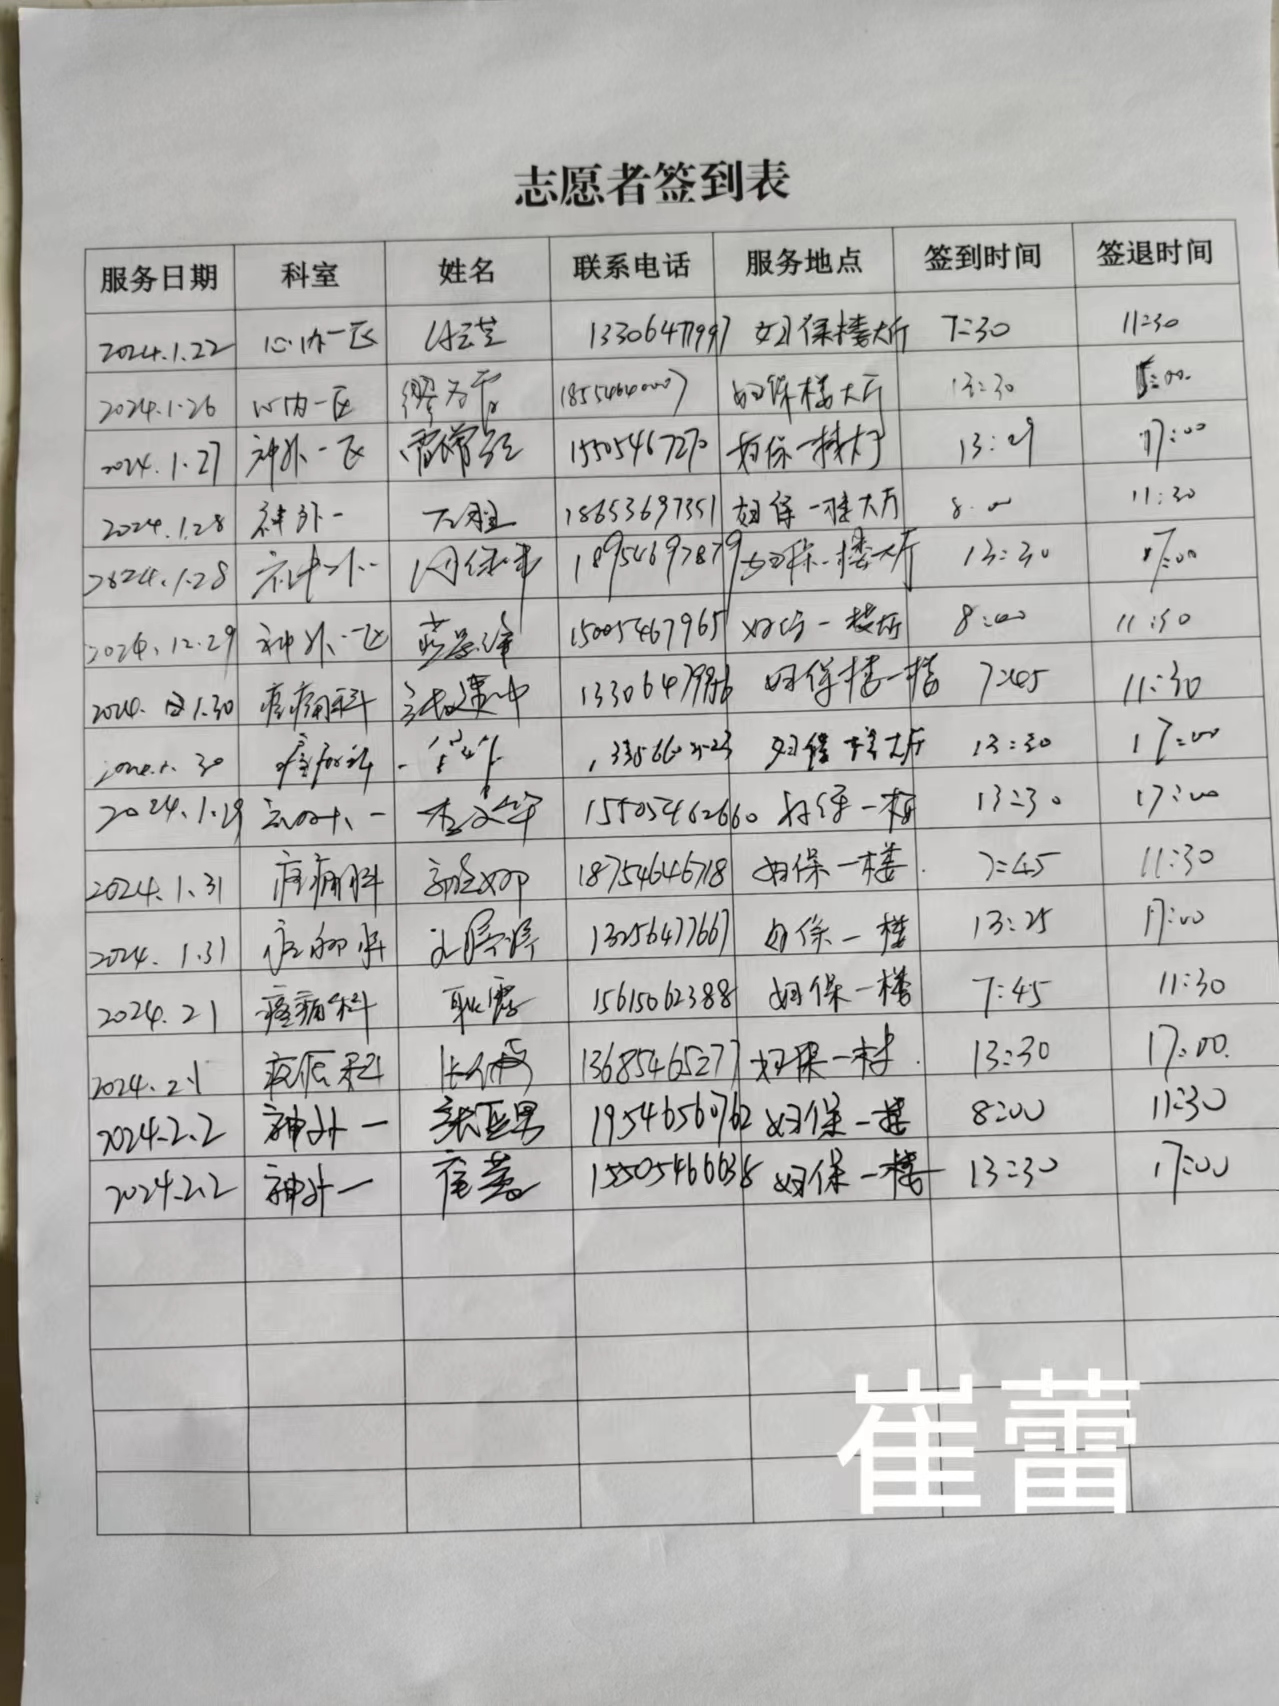 志愿者签到表
服务日期 科室 姓名 联系电话 服务地点 签到时间 签退时间
2024.1.22 心内一区 13306477997 妇保楼大厅 7:30 11:30
2024.1.26 心内一区 妇保楼大厅 13:30
2024.1.27 神外一区 15505467270 妇保一楼大厅 17:00
2024.1.28 神外一 18653697351 妇保一楼大厅 8:00 11:30
2024.1.28 神外一 18954697879 妇保一楼大厅 13:30 17:00
2024.12.29 神外一区 15005467965 8:00 11:30
2024. 1.30 疼痛科 妇保楼一楼 7:45 11:30
30 疼痛科 妇保一楼大厅 13:30 17:00
2024.1.29 杜文华 15505462660 妇保一楼 13:30 17:00
2024.1.31 疼痛科 18754646718 妇保一楼 7:45 11:30
2024.1.31 疼痛科 孔婷婷 13256477667 妇保一楼 13:25 17:00
2024.2.1 疼痛科 耿霞 15615062388 妇保一楼 7:45 11:30
2024.2.1 13685465277 妇保一楼 13:30 17:00
2024.2.2 神外一 张亚男 19546560762 妇保一楼 8:00 11:30
2024.2.2 神外一 崔蕾 15505466638 妇保一楼 13:30 17:00
崔蕾